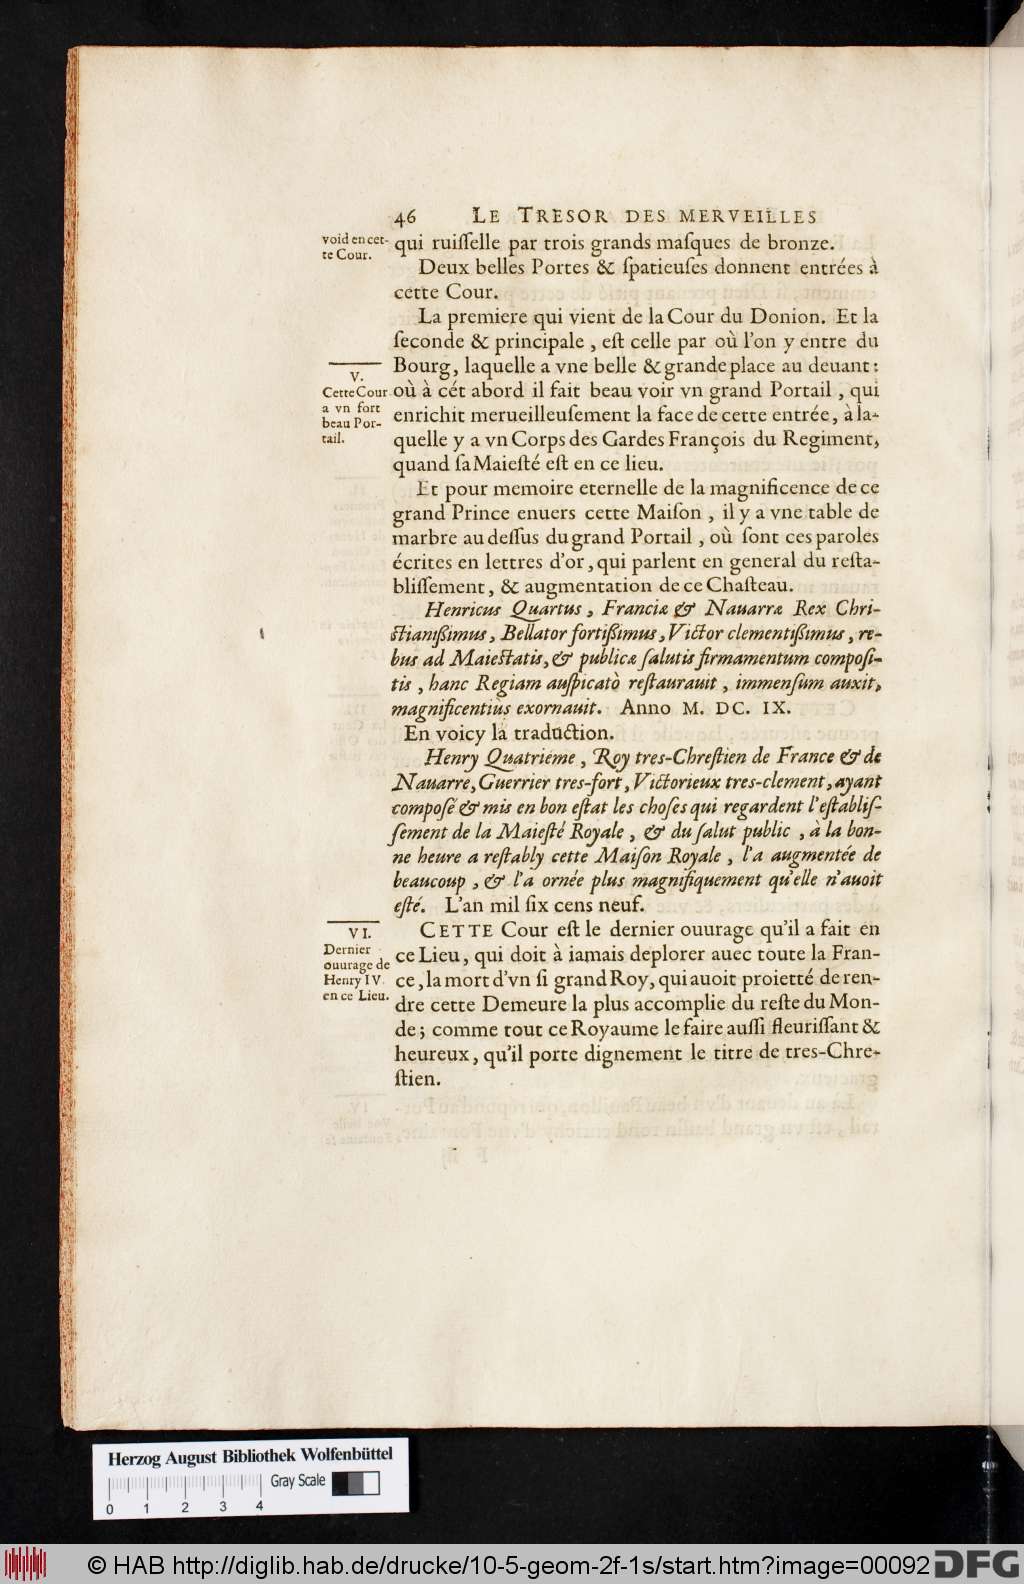 46 LE TRESOR DES MERVEILLES
void en cet-
te Cour.
qui ruiſſelle par trois grands maſques de bronze.
Deux belles Portes & ſpatieuſes donnent entrées à
cette Cour.
La premiere qui vient de la Cour du Donion. Et la
ſeconde & principale, eſt celle par où l'on y entre du
Bourg, laquelle a vne belle & grande place au deuant:
où à cét abord il fait beau voir vn grand Portail, qui
enrichit merueilleuſement la face de cette entrée, à la-
quelle y a vn Corps des Gardes François du Regiment,
quand ſa Maieſté eſt en ce lieu.
V.
Cette Cour
a vn fort
beau Por-
tail.
Et pour memoire eternelle de la magnificence de ce
grand Prince enuers cette Maiſon, il y a vne table de
marbre au deſſus du grand Portail, où ſont ces paroles
écrites en lettres d'or, qui parlent en general du reſta-
bliſſement, & augmentation de ce Chaſteau.
Henricus Quartus, Franciæ & Nauarræ Rex Chri-
ſtianißimus, Bellator fortißimus, Victor clementißimus, re-
bus ad Maieſtatis, & publicæ ſalutis firmamentum compoſi-
tis, hanc Regiam auſpicatò reſtaurauit, immenſum auxit,
magnificentiùs exornauit. Anno M. DC. IX.
En voicy la traduction.
Henry Quatriéme, Roy tres-Chreſtien de France & de
Nauarre, Guerrier tres-fort, Victorieux tres-clement, ayant
compoſé & mis en bon eſtat les choſes qui regardent l'eſtabliſ-
ſement de la Maieſté Royale, & du ſalut public, à la bon-
ne heure a reſtably cette Maiſon Royale, l'a augmentée de
beaucoup, & l'a ornée plus magnifiquement qu'elle n'auoit
eſté. L'an mil ſix cens neuf.
VI.
Dernier
ouurage de
Henry IV.
en ce Lieu.
CETTE Cour eſt le dernier ouurage qu'il a fait en
ce Lieu, qui doit à iamais deplorer auec toute la Fran-
ce, la mort d'vn ſi grand Roy, qui auoit proietté de ren-
dre cette Demeure la plus accomplie du reſte du Mon-
de; comme tout ce Royaume le faire auſſi fleuriſſant &
heureux, qu'il porte dignement le titre de tres-Chre-
ſtien.
Herzog August Bibliothek Wolfenbüttel
Gray Scale
0 1 2 3 4
© HAB http://diglib.hab.de/drucke/10-5-geom-2f-1s/start.htm?image=00092
DFG